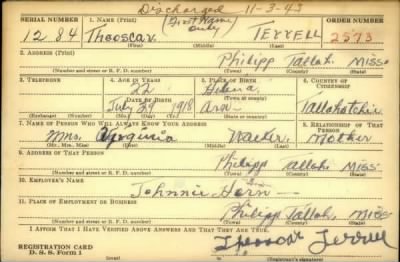 Discharged 11-3-43
SERIAL NUMBER 1. NAME (Print) (First Name only) ORDER NUMBER
1284 Theoscar TERRELL 2573
(First) (Middle) (Last)
2. ADDRESS (Print)
Philipp Tallah. MISS
(Number and street or R. F. D. number) (Town) (County) (State)
3. TELEPHONE 4. AGE IN YEARS 5. PLACE OF BIRTH 6. COUNTRY OF CITIZENSHIP
22 Helena
DATE OF BIRTH (Town or county)
July 29 1918 Ark Tallahatchie
(Exchange) (Number) (Mo.) (Day) (Yr.) (State or country)
7. NAME OF PERSON WHO WILL ALWAYS KNOW YOUR ADDRESS 8. RELATIONSHIP OF THAT PERSON
Mrs. Walker Mother
(Mr., Mrs., Miss) (First) (Middle) (Last)
9. ADDRESS OF THAT PERSON
Philipp Tallah MISS
(Number and street or R. F. D. number) (Town) (County) (State)
10. EMPLOYER'S NAME
Johnnie Horn
11. PLACE OF EMPLOYMENT OR BUSINESS
Philipp Tallah. MISS
(Number and street or R. F. D. number) (Town) (County) (State)
I AFFIRM THAT I HAVE VERIFIED ABOVE ANSWERS AND THAT THEY ARE TRUE.
REGISTRATION CARD
D. S. S. Form 1 Theoscar Terrell
(Registrant's signature)